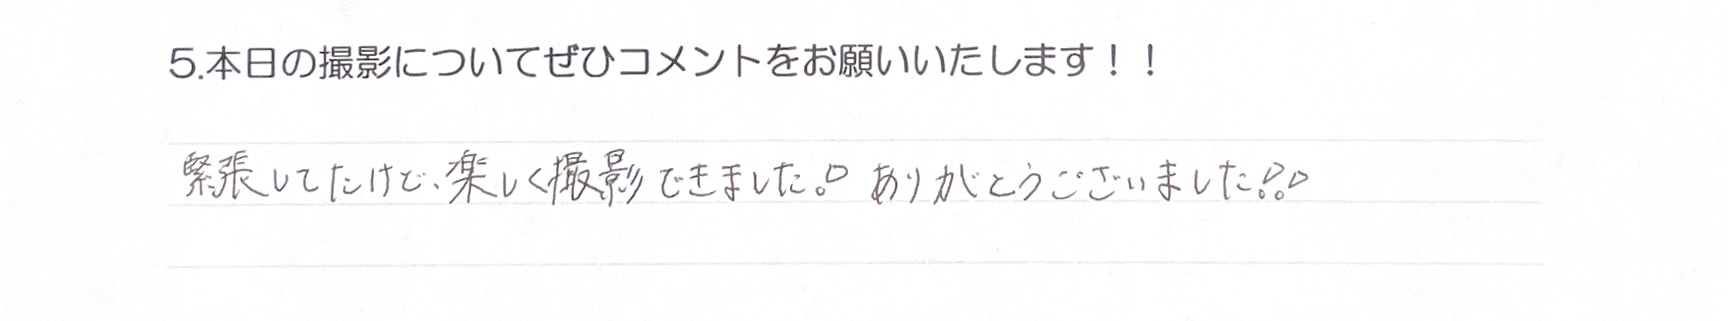 5.本日の撮影についてぜひコメントをお願いいたします！！
緊張してたけど、楽しく撮影できました。♡ ありがとうございました!!♡